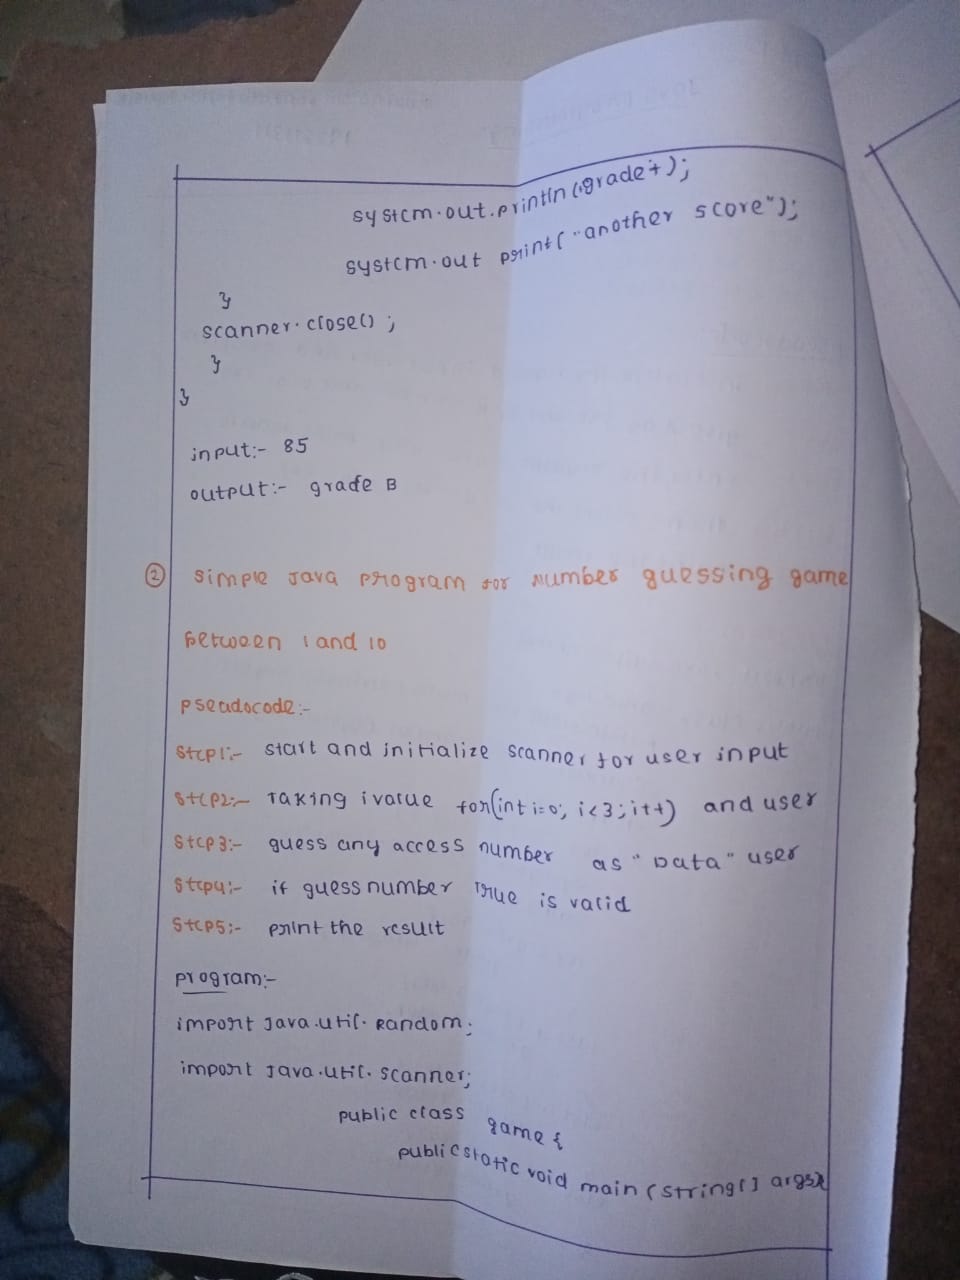 system.out.println("grade+);
system.out print("another score");
}
scanner.close();
}
}
input:- 85
output:- grade B
② simple Java program for number guessing game
between 1 and 10
pseadocode:-
Step1:- start and initialize scanner for user input
Step2:- Taking ivalue for(int i=0; i<3; i++) and user
Step3:- guess any access number as "Data" user
Step4:- if guess number True is valid
Step5:- print the result
program:-
import Java.util.Random;
import Java.util.scanner;
public class game {
public static void main (string[] args){